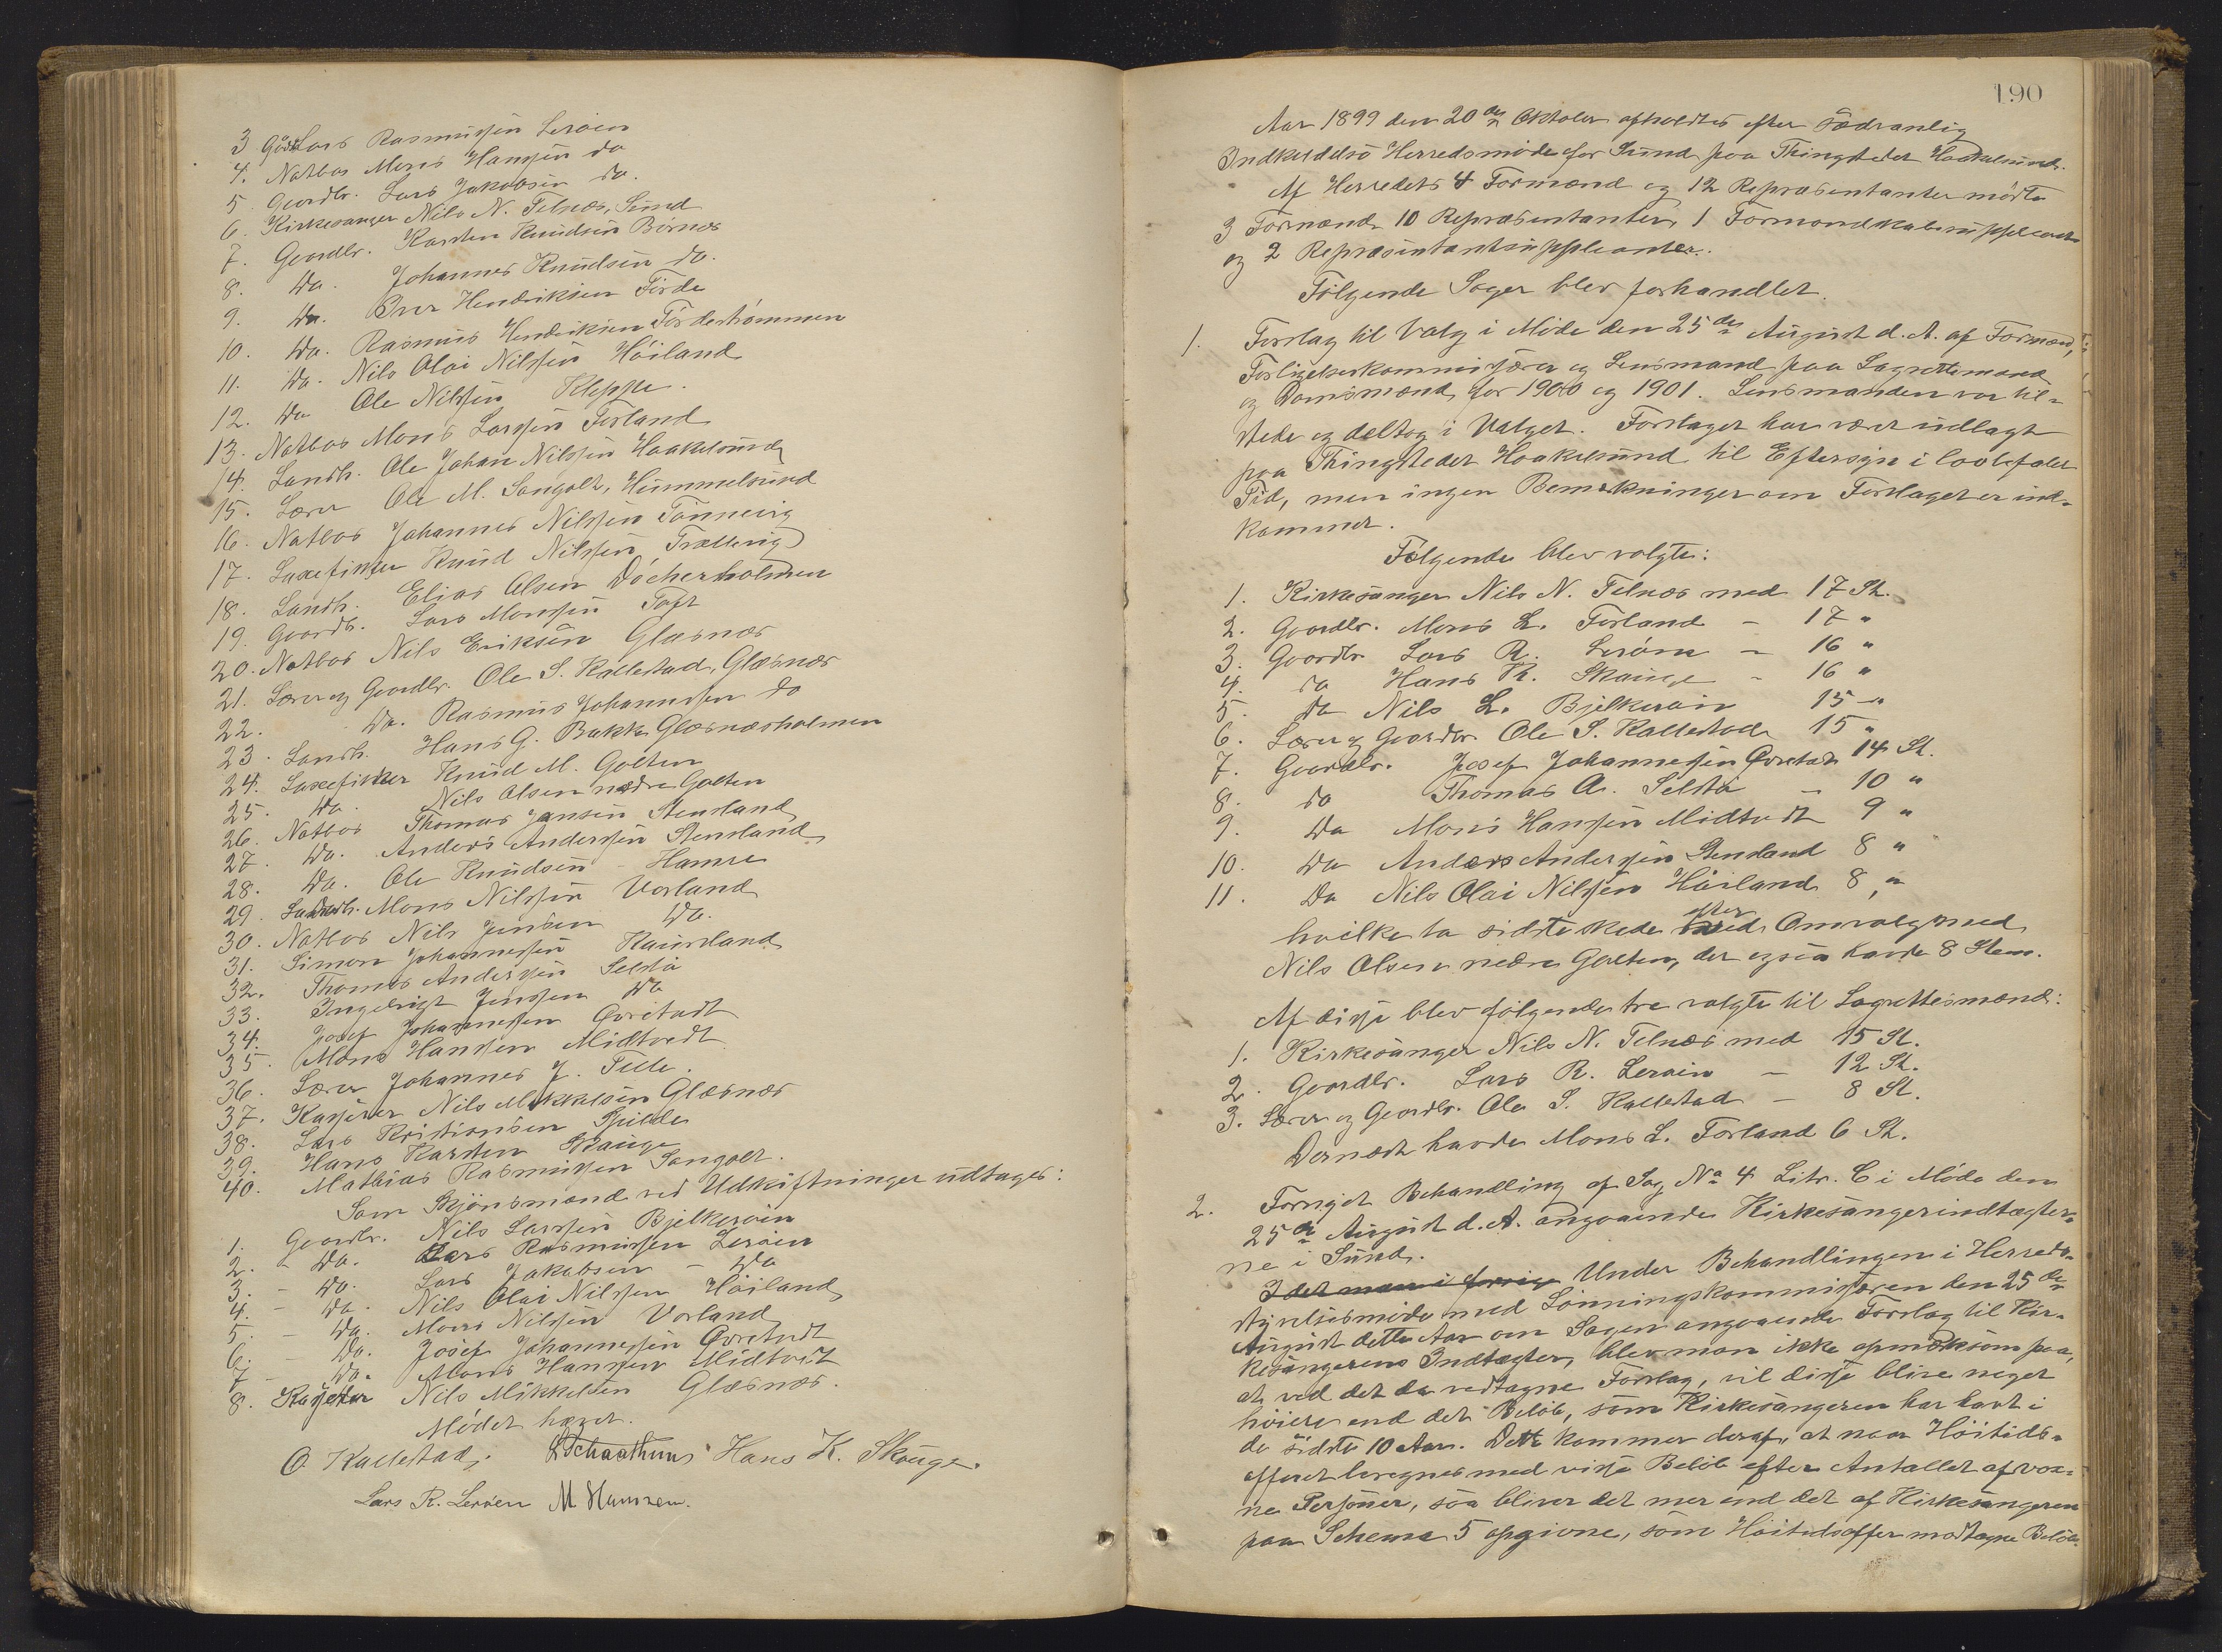 3 Gdb. Lars Rasmussen Lerøen
4. Notbas Mons Hansen do
5 Gaardbr. Lars Jakobsen do.
6. Kirkesanger Nils N. Telnæs, Sund
7. Gaardbr. Karsten Knudsen Börnæs
8. Do. Johannes Knudsen do.
9. Do. Iver Hendriksen Förde
10. Do. Rasmus Hendriksen Fördeströmmen
11. Do. Nils Olai Nilssen Höiland
12. Do Ole Nilssen Kleppe.
13. Notbas Mons Larssen Forland
14. Landh. Ole Johan Nilssen Haakelsund
15. Lærer Ole M. Sangolt, Hummelsund
16. Notbas Johannes Nilssen Tönnevig
17. Laxefisker Knud Nilssen Trællevig
18. Landh. Elias Olsen Döcherholmen
19. Gaardb. Lars Monssen Toft
20. Notbas Nils Eriksen Glæsnæs
21. Lærer og Gaardbr. Ole S. Kallestad, Glæsnæs
22. Do. Rasmus Johannessen do
23. Landh. Hans G. Bakke Glæsnæsholmen
24. Laxefisker Knud M. Golten
25. Do. Nils Olsen nedre Golten
26. Notbas Thomas Jansen Stensland
27. Do. Anders Anderssen Stensland
28. Do. Ole Knudsen Hamre
29. Landh. Mons Nilssen Vorland
30. Notbas Nils Jensen Do.
31. Simon Johannessen Kausland
32. Thomas Anderssen Selstø
33. Ingebrigt Jenssen Do
34. Josef Johannessen Övretvedt
35. Mons Hanssen Midtvedt
36. Lærer Johannes J. Telle.
37. Kasserer Nils Mikkelsen Glæsnæs
38. Lars Kristiansen Spilde
39. Hans Karsten Skauge
40. Mathias Rasmussen Sangolt.
Som Skjönsmænd ved Udskiftninger udtages:
1. Gaardbr. Nils Larssen Bjelkeröen
2. - Do. Lars Rasmussen Leröen
3. - Do. Lars Jakobsen - Do
4. - Do. Nils Olai Nilssen Höiland
5. - Do. Mons Nilssen Vorland
6. - Do. Josef Johannessen Övretvedt
7 - Do. Mons Hanssen Midtvedt
8. Kasserer Nils Mikkelsen Glæsnæs.
Mödet hævet.
O Kallestad. L Schaathun Hans K. Skauge.
Lars R. Leröen M Hanssen.
190
Aar 1899 den 20de Oktober afholdtes efter sædvanlig
Indkaldelse Herredsmöde for Sund paa Thingstedet Haakelsund.
Af Herredets 4 Formænd og 12 Repræsentanter mödte
3 Formænd 10 Repræsentanter, 1 Formandskabssuppleant
og 2 Repræsentantsuppleanter.
Fölgende Sager blev forhandlet.
1. Forslag til Valg i Möde den 25de August d. A. af Formænd,
Forligelseskommissærer og Lensmand paa Lagrettemænd
og Domsmænd for 1900 og 1901. Lensmanden var til-
stede og deltog i Valget. Forslaget har været udlagt
paa Thingstedet Haakelsund til Eftersyn i lovbefalet
Tid, men ingen Bemerkninger om Forslaget er ind-
kommet.
Fölgende blev valgte:
1. Kirkesanger Nils N. Telnæs med 17 St.
2. Gaardbr. Mons L. Forland - 17 "
3. Gaardbr Lars R. Leröen - 16 "
4. do Hans K. Skauge - 16 "
5. Do Nils L. Bjelkeröen 15 "
6. Lærer og Gaardbr. Ole S. Kallestad 15 "
7. Gaardbr. Josef Johannessen Övretvedt 14 St.
8. do Thomas A. Selstø - 10 "
9. Do Mons Hanssen Midtvedt 9 "
10. Do Anders Anderssen Stensland 8 "
11. Do Nils Olai Nilssen Höiland 8 "
hvilke to sidste skede efter Omvalg med
Nils Olsen nedre Golten, der ogsaa havde 8 Stem.
Af disse blev fölgende tre valgte til Lagrettesmænd:
1. Kirkesanger Nils N. Telnæs med 15 St.
2. Gaardbr. Lars R. Leröen - 12 St.
3. Lærer og Gaardbr. Ole S. Kallestad - 8 St.
Dernæst havde Mons L. Forland 6 St.
2. Fornyet Behandling af Sag No 4 Litr. C i Möde den
25de August d. A. angaaende Kirkesangerindtægter-
ne i Sund.
Idet man i forrige Under Behandlingen i Herreds-
styrelsesmöde med Lönningskommissæren den 25de
August dette Aar om Sagen angaaende Forslag til Kir-
kesangerens Indtægter, blev man ikke opmerksom paa,
at ved det da vedtagne Forslag, vil disse blive noget
höiere end det Belöb, som Kirkesangeren har havt i
de sidste 10 Aar. Dette kommer deraf, at naar Höitids-
offeret beregnes med visse Belöb efter Antallet af vox-
ne Personer, saa bliver det mer end det af Kirkesangeren
paa Schema 5 opgivne, som Höitidsoffer modtagne Belöb.